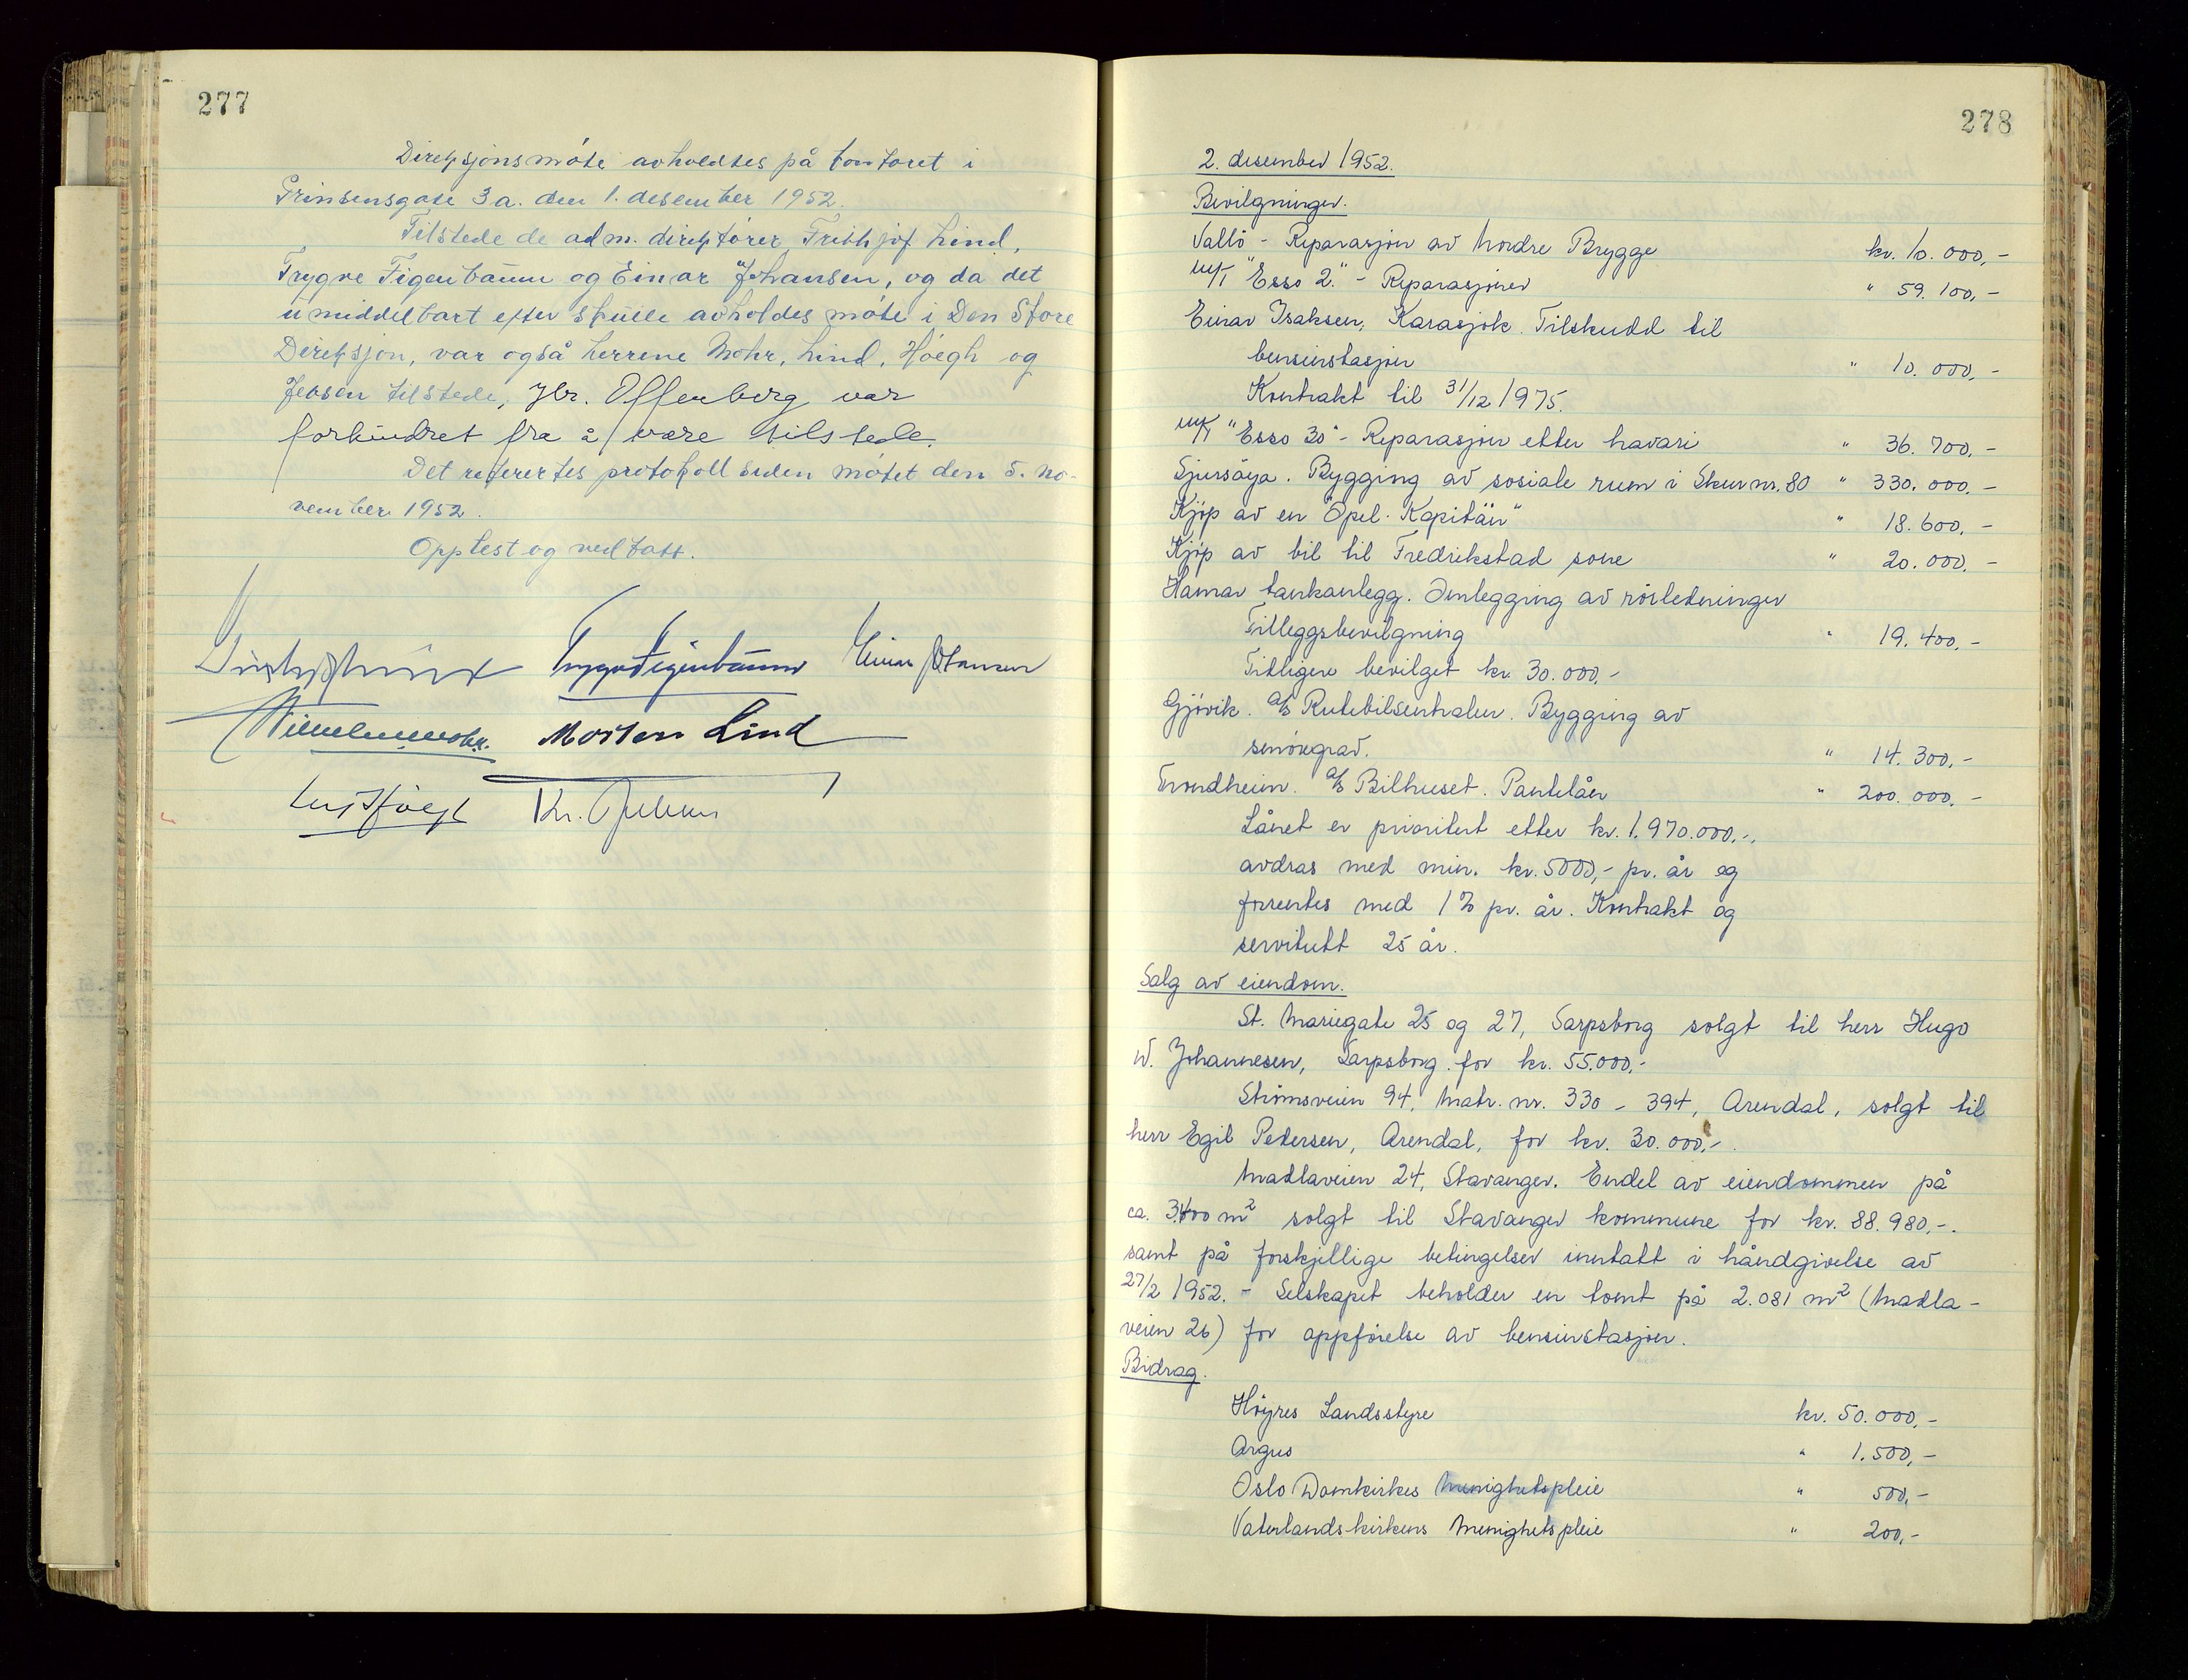 277
Direksjonsmöte avholdtes på kontoret i
Prinsensgate 3a. den 1. desember 1952.
Tilstede de adm. direktører Fridthjof Lind,
Trygve Figenbaum og Einar Johansen, og da det
umiddelbart efter skulle avholdes möte i Den Store
Direksjon, var også herrene Mohr, Lind, Höegh og
Jebsen tilstede, Hr. Offenberg var
forhindret fra å være tilstede.
Det referertes protokoll siden mötet den 5. no-
vember 1952.
Opplest og vedtatt.
Trygve Figenbaum Einar Johansen
Morten Lind
278
2. desember 1952.
Bevilgninger.
Vallö - Reparasjon av Nordre Brygge kr. 10.000,-
M/T "Esso 2." - Reparasjoner " 59.100,-
Einar Isaksen, Karasjok. Tilskudd til
bensinstasjon " 10.000,-
Kontrakt til 31/12 1975.
M/T "Esso 30" - Reparasjon etter havari " 36.700,-
Sjursöya. Bygging av sosiale rum i Skur nr. 80 " 330.000,-
Kjöp av en "Opel-Kapitän" " 18.600,-
Kjöp av bil til Fredrikstad sone " 20.000,-
Hamar tankanlegg. Omlegging av rörledninger
Tilleggsbevilgning " 19.400,-
Tidligere bevilget kr. 30.000,-
Gjövik. A/S Rutebilsentralen. Bygging av
smöregrav. " 14.300,-
Trondheim. A/S Bilhuset. Pantelån " 200.000,-
Lånet er prioritert etter kr. 1.970.000,-,
avdras med min. kr. 5000,- pr. år og
forrentes med 1% pr. år. Kontrakt og
servitutt 25 år.
Salg av eiendom.
St. Mariegate 25 og 27, Sarpsborg solgt til herr Hugo
W. Johannesen, Sarpsborg for kr. 55.000,-
Strömsveien 94, Matr. nr. 330 - 394, Arendal, solgt til
herr Egil Pedersen, Arendal, for kr. 30.000,-.
Madlaveien 24, Stavanger. Endel av eiendommen på
ca. 3400 m² solgt til Stavanger kommune for kr. 88.980,-.
samt på forskjellige betingelser inntatt i håndgivelse av
27/2 1952. - Selskapet beholder en tomt på 2.081 m² (Madla-
veien 26) for oppförelse av bensinstasjon.
Bidrag.
Höyres Landsstyre kr. 50.000,-
Argus " 1.500,-
Oslo Domkirkes Menighetspleie " 500,-
Vaterlandskirkens Menighetspleie " 200,-